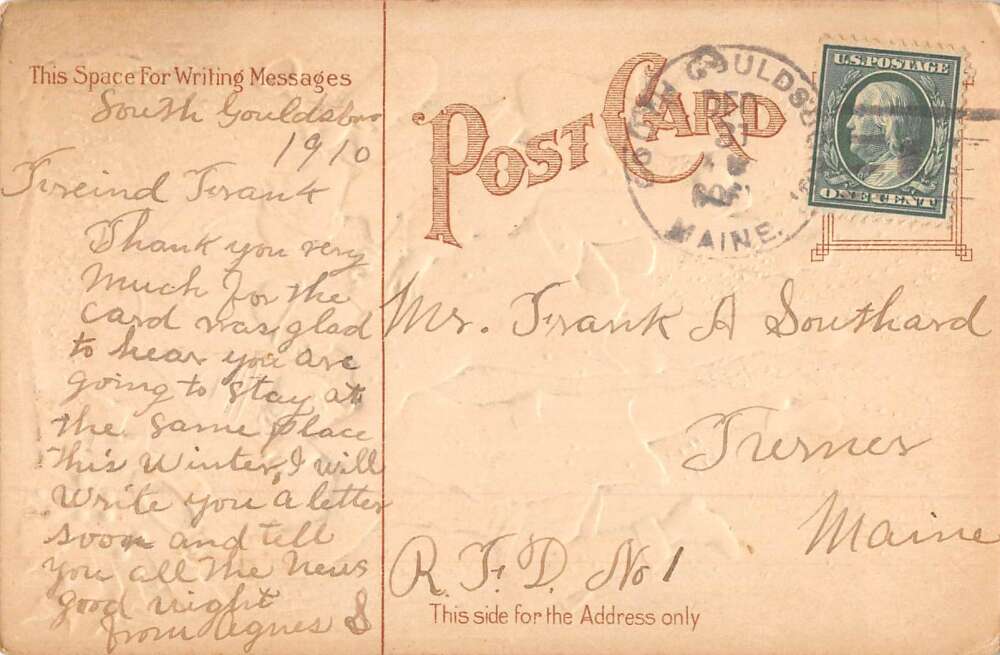 This Space For Writing Messages
South Gouldsboro
1910
Freind Frank
Thank you very
Much for the
card was glad
to hear you are
going to stay at
the same place
this Winter, I will
Write you a letter
soon and tell
you all the News
good night
from Agnes S
POST CARD
SOUTH GOULDSBORO
MAINE.
U.S. POSTAGE
ONE CENT
Mr. Frank A Southard
Turner
Maine
R. F. D. No 1
This side for the Address only